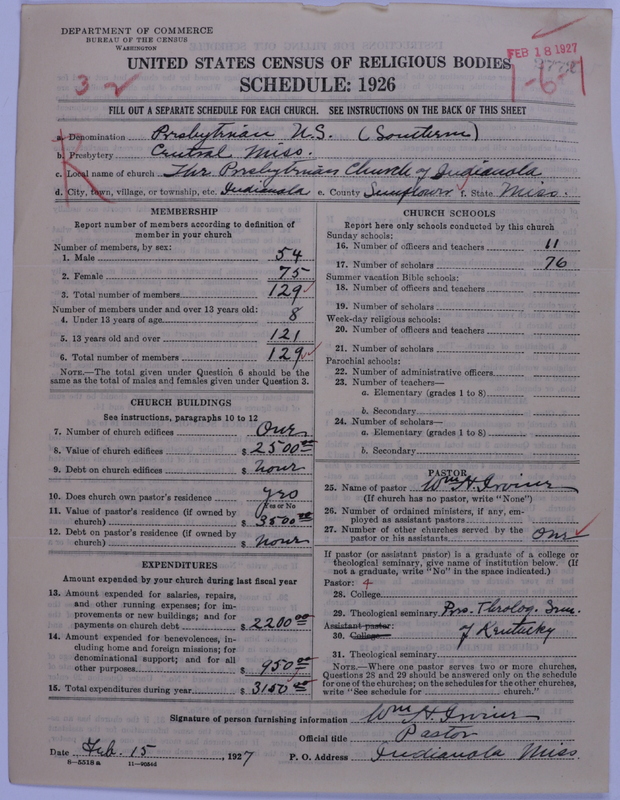 DEPARTMENT OF COMMERCE
BUREAU OF THE CENSUS
WASHINGTON
FEB 18 1927
UNITED STATES CENSUS OF RELIGIOUS BODIES
SCHEDULE: 1926
1-67
32
FILL OUT A SEPARATE SCHEDULE FOR EACH CHURCH. SEE INSTRUCTIONS ON THE BACK OF THIS SHEET
a. Denomination Presbyterian U.S. (Southern)
b. Presbytery Central Miss.
c. Local name of church The Presbyterian Church of Indianola
d. City, town, village, or township, etc. Indianola e. County Sunflower f. State Miss.
MEMBERSHIP
Report number of members according to definition of
member in your church
Number of members, by sex:
1. Male 54
2. Female 75
3. Total number of members 129
Number of members under and over 13 years old:
4. Under 13 years of age 8
5. 13 years old and over 121
6. Total number of members 129
NOTE.—The total given under Question 6 should be the
same as the total of males and females given under Question 3.
CHURCH BUILDINGS
See instructions, paragraphs 10 to 12
7. Number of church edifices One
8. Value of church edifices $ 2500.00
9. Debt on church edifices $ none
10. Does church own pastor's residence yes
Yes or No
11. Value of pastor's residence (if owned by
church) $ 3500.00
12. Debt on pastor's residence (if owned by
church) $ none
EXPENDITURES
Amount expended by your church during last fiscal year
13. Amount expended for salaries, repairs,
and other running expenses; for im-
provements or new buildings; and for
payments on church debt $ 2200.00
14. Amount expended for benevolences, in-
cluding home and foreign missions; for
denominational support; and for all
other purposes $ 950.00
15. Total expenditures during year $ 3150.00
CHURCH SCHOOLS
Report here only schools conducted by this church
Sunday schools:
16. Number of officers and teachers 11
17. Number of scholars 76
Summer vacation Bible schools:
18. Number of officers and teachers
19. Number of scholars
Week-day religious schools:
20. Number of officers and teachers
21. Number of scholars
Parochial schools:
22. Number of administrative officers
23. Number of teachers—
a. Elementary (grades 1 to 8)
b. Secondary
24. Number of scholars—
a. Elementary (grades 1 to 8)
b. Secondary
PASTOR
25. Name of pastor Wm H. Irvine
(If church has no pastor, write "None")
26. Number of ordained ministers, if any, em-
ployed as assistant pastors
27. Number of other churches served by the
pastor or his assistants One
If pastor (or assistant pastor) is a graduate of a college or
theological seminary, give name of institution below. (If
not a graduate, write "No" in the space indicated.)
Pastor: 4
28. College
29. Theological seminary Pres. Theolog. Sem.
Assistant pastor:
30. College of Kentucky
31. Theological seminary
NOTE.—Where one pastor serves two or more churches,
Questions 28 and 29 should be answered only on the schedule
for one of the churches; on the schedules for the other churches,
write "See schedule for church."
Signature of person furnishing information Wm H. Irvine
Official title Pastor
Date Feb. 15, 1927 P. O. Address Indianola Miss.
8-5518 a 11-90546